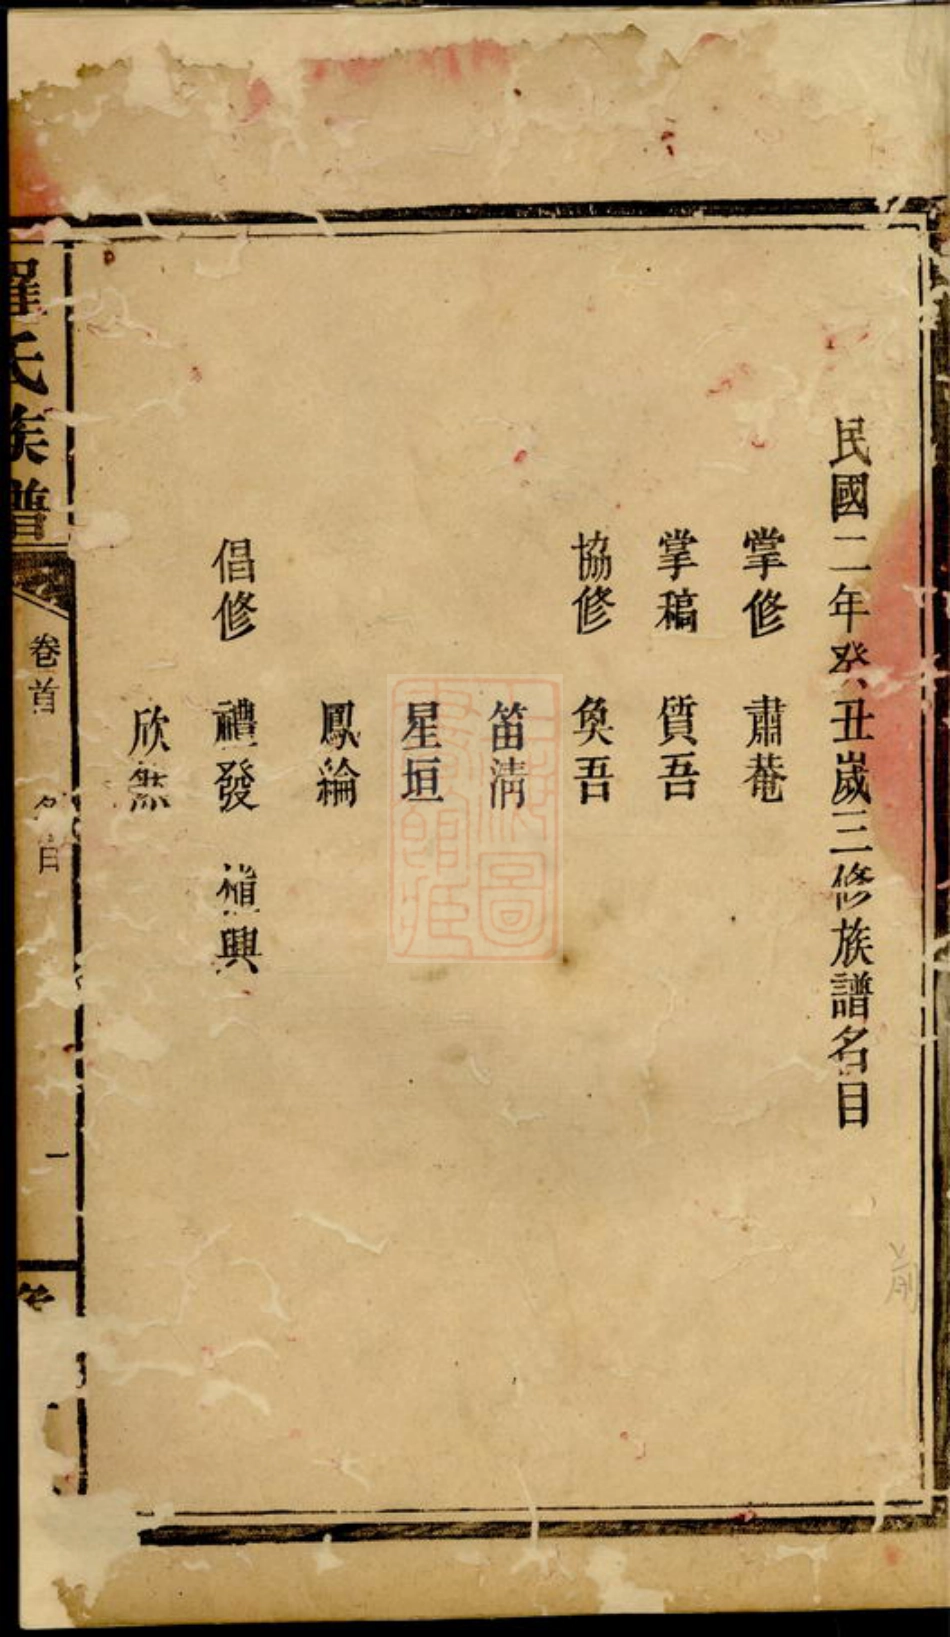 民國二年癸丑歲三修族譜名目
掌修 肅菴
掌稿 質吾
協修 奐吾
笛淸
星垣
鳳綸
倡修 禮發 植興
欣然
羅氏族譜 卷首 名目 一